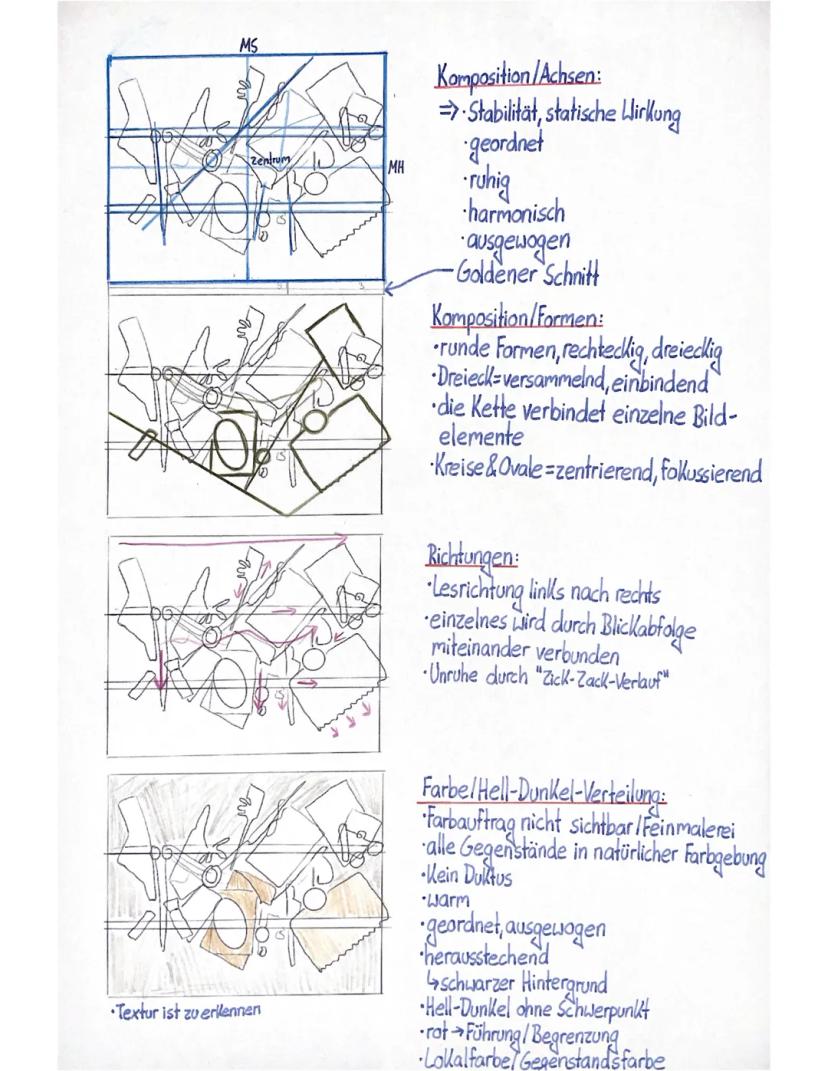 MS
Zentrum
MH
Komposition/Achsen:
⇒ · Stabilität, statische Wirkung
· geordnet
· ruhig
· harmonisch
· ausgewogen
Goldener Schnitt
Komposition/Formen:
· runde Formen, rechteckig, dreieckig
· Dreieck=versammelnd, einbindend
· die Kette verbindet einzelne Bild-
elemente
· Kreise & Ovale=zentrierend, fokussierend
Richtungen:
· Lesrichtung links nach rechts
· einzelnes wird durch Blickabfolge
miteinander verbunden
· Unruhe durch "Zick-Zack-Verlauf"
Farbe/Hell-Dunkel-Verteilung:
· Farbauftrag nicht sichtbar/Feinmalerei
· alle Gegenstände in natürlicher Farbgebung
· Kein Duktus
· warm
· geordnet, ausgewogen
· herausstechend
↳ schwarzer Hintergrund
· Hell-Dunkel ohne Schwerpunkt
· rot → Führung/Begrenzung
· Lokalfarbe/Gegenstandsfarbe
· Textur ist zu erkennen